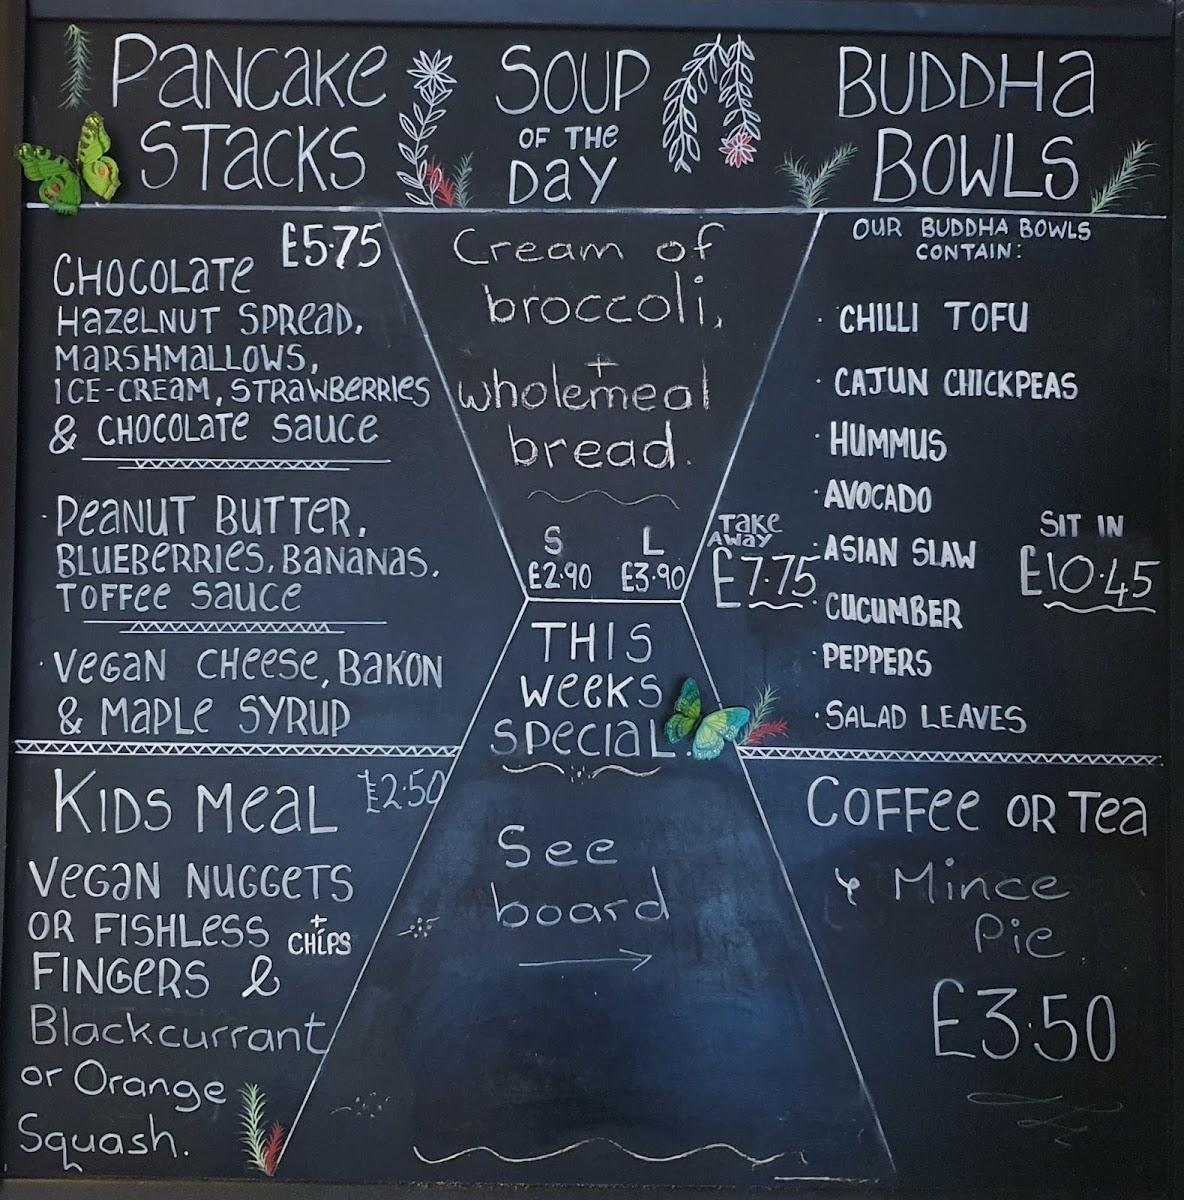 PANCAKE
STACKS
£5.75
CHOCOLATE
HAZELNUT SPREAD,
MARSHMALLOWS,
ICE-CREAM, STRAWBERRIES
& CHOCOLATE SAUCE
· PEANUT BUTTER,
BLUEBERRIES, BANANAS,
TOFFEE SAUCE
· VEGAN CHEESE, BAKON
& MAPLE SYRUP
KIDS MEAL £2.50
VEGAN NUGGETS
OR FISHLESS + CHIPS
FINGERS &
Blackcurrant
or Orange
Squash.
SOUP
OF THE
DAY
Cream of
broccoli,
+
wholemeal
bread.
S L
£2.90 £3.90
THIS
WEEKS
SPECIAL.
See
board
BUDDHA
BOWLS
OUR BUDDHA BOWLS
CONTAIN:
· CHILLI TOFU
· CAJUN CHICKPEAS
· HUMMUS
· AVOCADO
· ASIAN SLAW
· CUCUMBER
· PEPPERS
· SALAD LEAVES
TAKE
AWAY
£7.75
SIT IN
£10.45
COFFEE OR TEA
& Mince
Pie.
£3.50